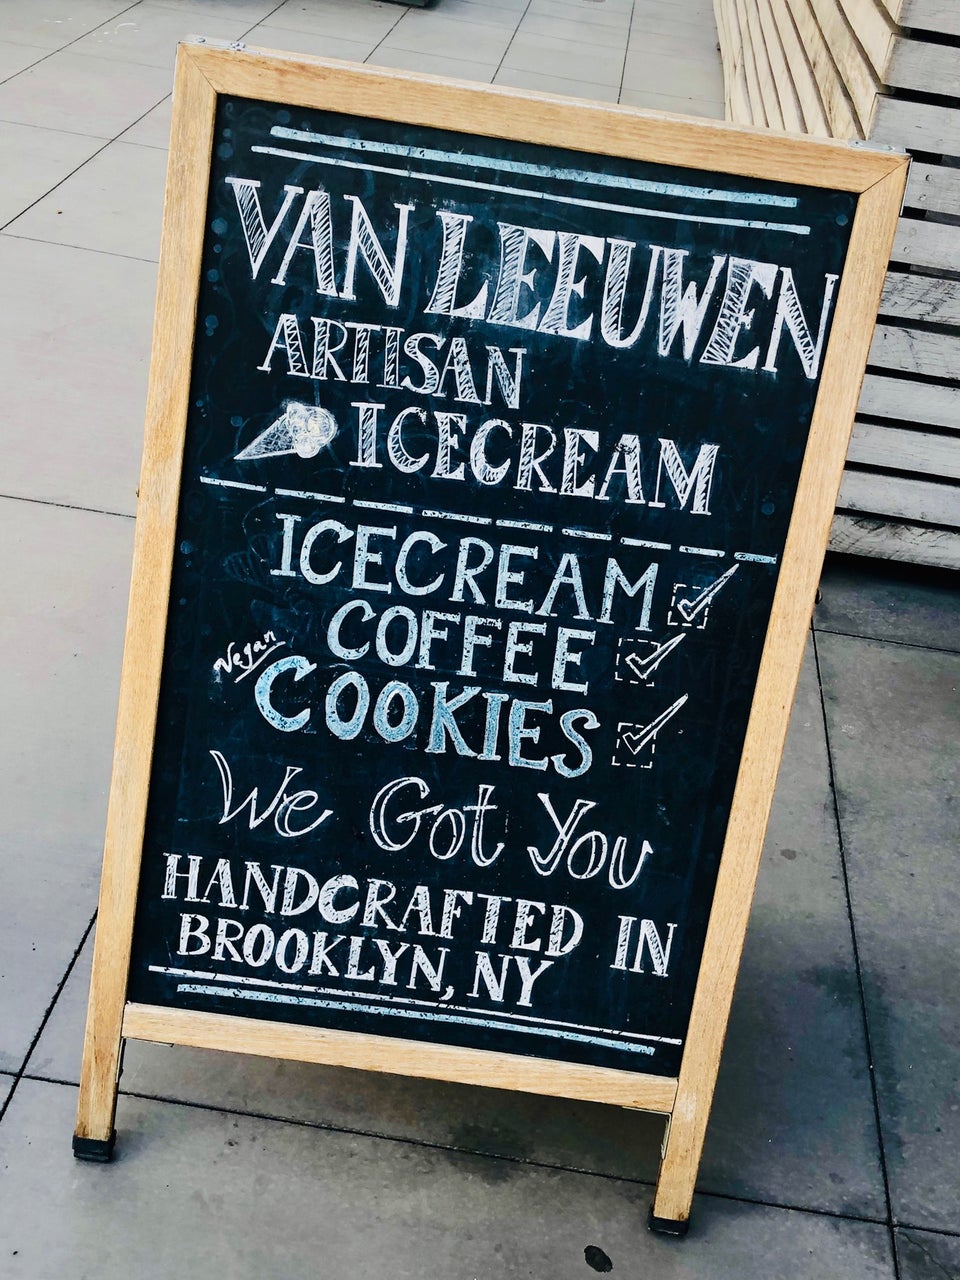 VAN LEEUWEN
ARTISAN
ICECREAM
ICECREAM
COFFEE
Vegan
COOKIES
We Got You
HANDCRAFTED IN
BROOKLYN, NY